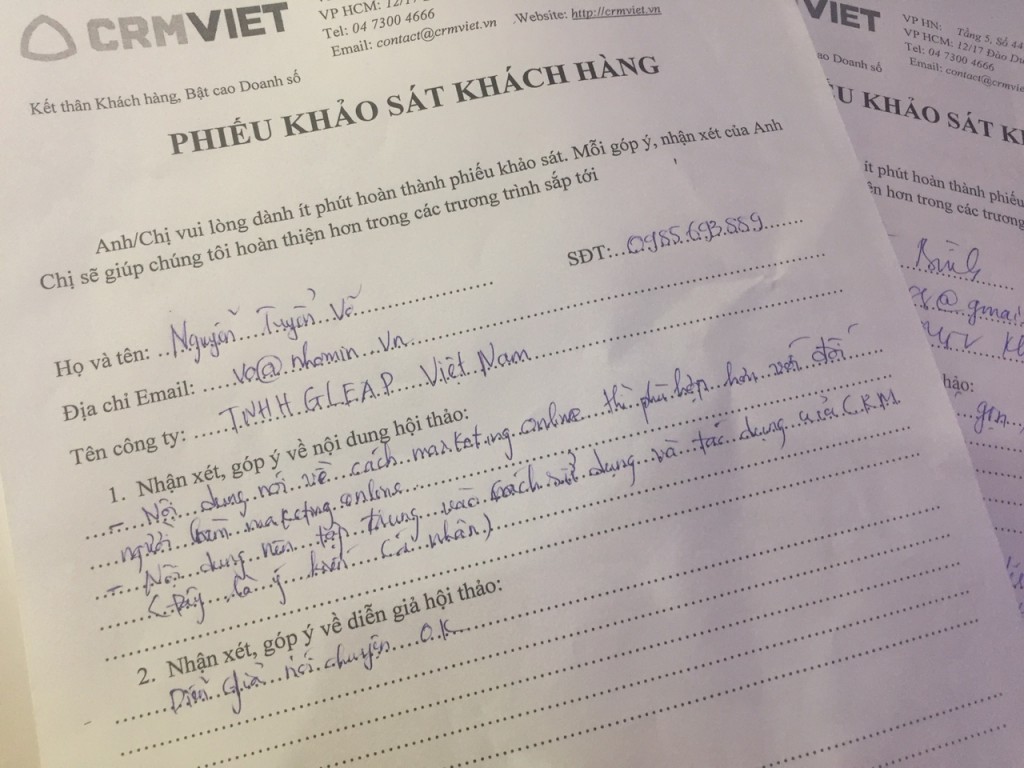 CRMVIET
VP HCM: 12/17
Tel: 04 7300 4666
Email: contact@crmviet.vn .Website: http://crmviet.vn
Kết thân Khách hàng, Bật cao Doanh số
PHIẾU KHẢO SÁT KHÁCH HÀNG
Anh/Chị vui lòng dành ít phút hoàn thành phiếu khảo sát. Mỗi góp ý, nhận xét của Anh
Chị sẽ giúp chúng tôi hoàn thiện hơn trong các trương trình sắp tới
Họ và tên: Nguyễn Truyền Võ SĐT: 0985.693.889
Địa chỉ Email: vo@nhomin.vn
Tên công ty: TNHH GLEAP Việt Nam
1. Nhận xét, góp ý về nội dung hội thảo:
- Nội dung nói về cách marketing online thì phù hợp hơn với đối
người làm marketing online
- Nội dung nên tập trung vào cách sử dụng và tác dụng của CRM
(Đây là ý kiến cá nhân)
2. Nhận xét, góp ý về diễn giả hội thảo:
Diễn giả nói chuyện O.K
VIET
VP HN: Tầng 5, Số 44
VP HCM: 12/17 Đào Du
Tel: 04 7300 4666
Email: contact@crmvie
ao Doanh số
U KHẢO SÁT KH
ít phút hoàn thành phiếu
ện hơn trong các trương
Bình
@gmai
hảo: